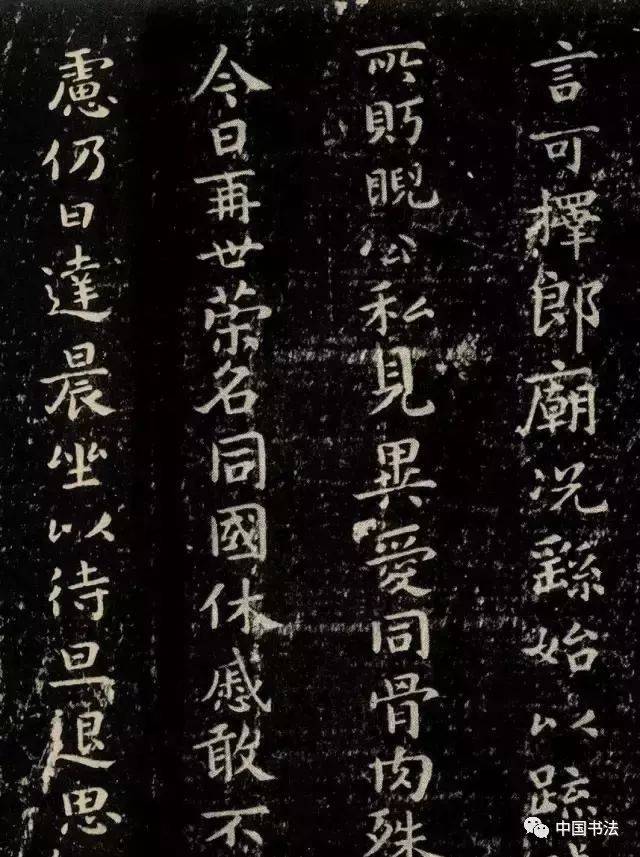 言可擇郎廟況繇始以疏
所眄睨公私見異愛同骨肉殊
今日再世荣名同國休慼敢不
慮仍日達晨坐以待旦退思
中国书法